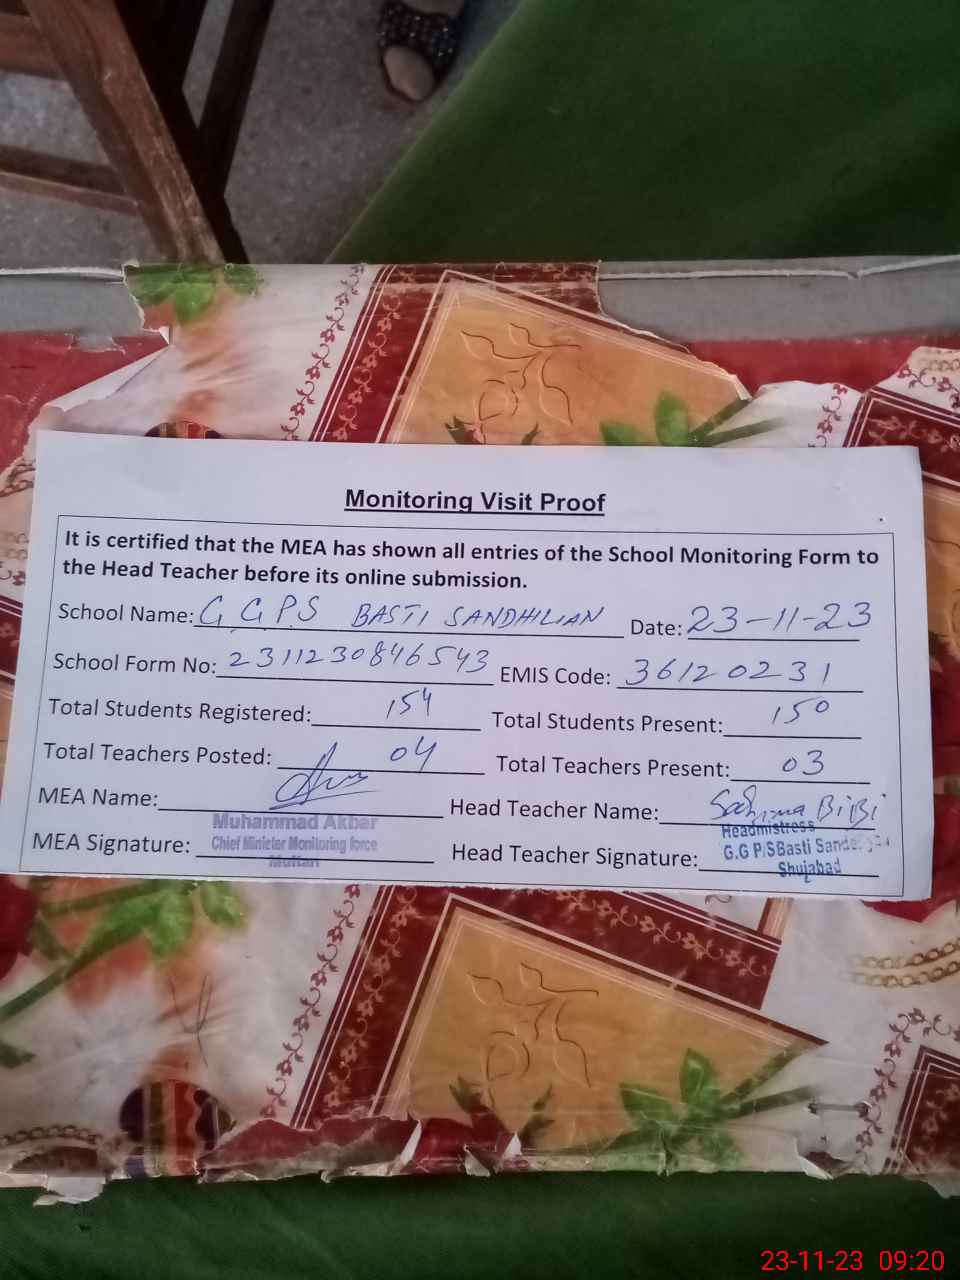 Monitoring Visit Proof
It is certified that the MEA has shown all entries of the School Monitoring Form to
the Head Teacher before its online submission.
School Name: G G P.S BASTI SANDHILIAN Date: 23-11-23
School Form No: 2311230846543 EMIS Code: 36120231
Total Students Registered: 154 Total Students Present: 150
Total Teachers Posted: 04 Total Teachers Present: 03
MEA Name: Head Teacher Name: BiBi
Muhammad Akbar Headmistress
MEA Signature: Chief Minister Monitoring force Head Teacher Signature: G.G P/S Basti
Multan Shujabad
23-11-23 09:20